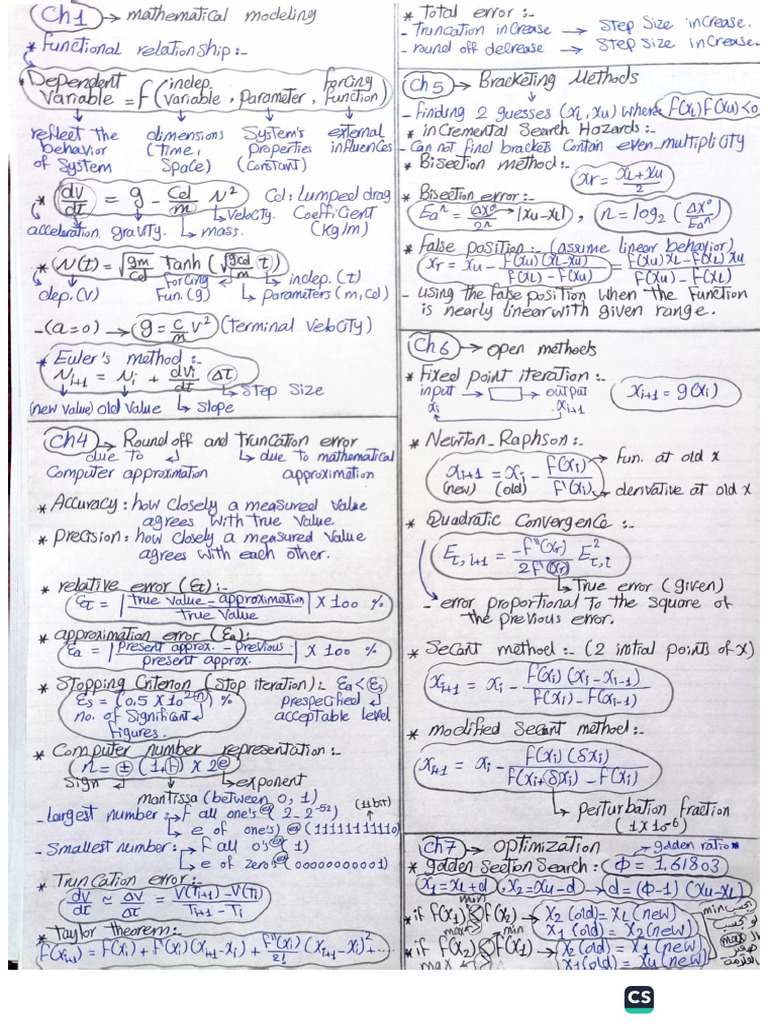 Ch1 → mathematical modeling
* Functional relationship:-
Dependent Variable = f(indep. variable, parameter, forcing function)
reflect the behavior of System
dimensions (Time, Space)
System's Properties (Constant)
external influences
* dv/dt = g - Cd/m v²
Cd: Lumped drag Coefficient (kg/m)
acceleration gravity. mass. velocity.
* v(t) = √(gm/Cd) Tanh (√(gcd/m) t)
dep.(v) forcing Fun.(g) indep.(t)
parameters (m, cd)
-(a=0) → g = c/m v² (Terminal Velocity)
* Euler's method:-
vi+1 = vi + dvi/dt Δt
(new value) old value Slope Step Size
Ch4 → Round off and truncation error
due to Computer approximation
due to mathematical approximation
* Accuracy: how closely a measured value
agrees with True value.
* Precision: how closely a measured value
agrees with each other.
* relative error (Et):-
Et = |True value - approximation / True value| X 100 %
* approximation error (Ea):-
Ea = |present approx. - Previous / present approx.| X 100 %
* Stopping Criterion (stop iteration):- Ea < Es
Es = (0.5 X 10^(2-n)) %
no. of Significant Figures.
prespecified acceptable level
* Computer number representation:-
n = ± (1+f) X 2^e
Sign exponent
mantissa (between 0, 1)
(11bit)
- Largest number: → f all one's (2-2^-52)
e of one's (11111111110)
- Smallest number: → f all 0's (1)
e of zero's (00000000001)
* Truncation error:-
dv/dt ≃ Δv/Δt = V(Ti+1) - V(Ti) / Ti+1 - Ti
* Taylor theorem:-
F(xi+1) = F(xi) + F'(xi)(xi+1 - xi) + F''(xi)/2! (xi+1 - xi)² + ...
* Total error:-
- Truncation increase → Step Size increase.
- round off decrease → Step Size increase.
Ch5 → Bracketing Methods
- finding 2 guesses (xL, xu) where F(xL) F(xu) < 0
* incremental Search Hazards:-
- Can not find brackets Contain even_multiplicity
* Bisection method:-
xr = xL + xu / 2
* Bisection error:-
Ea^n = Δx°/2^n → |xu - xL| , n = log2 (Δx°/Ea^n)
* False position:- (assume linear behavior)
xr = xu - f(xu)(xL - xu) / f(xL) - f(xu) = f(xu) xL - f(xL) xu / f(xu) - f(xL)
- using the false position when the function
is nearly linear with given range.
Ch6 → open methods
* Fixed point iteration:-
input → output
xi xi+1
xi+1 = g(xi)
* Newton_Raphson:-
xi+1 = xi - f(xi) / f'(xi)
(new) (old)
Fun. at old x
derivative at old x
* Quadratic Convergence:-
Et,i+1 = -f''(xr) / 2f'(xr) E²t,i
True error (given)
- error proportional to the square of
the previous error.
* Secant method:- (2 initial points of x)
xi+1 = xi - f(xi)(xi - xi-1) / f(xi) - f(xi-1)
* modified Secant method:-
xi+1 = xi - f(xi)(δxi) / f(xi + δxi) - f(xi)
perturbation fraction
(1X10^-6)
Ch7 → optimization
golden ratio
* golden Section Search: Φ = 1.61803
x1 = xL + d, x2 = xu - d → d = (Φ-1)(xu - xL)
min
* if f(x1) < f(x2) → x2 (old) = xL (new)
x1 (old) = x2 (new)
max min
* if f(x2) < f(x1) → x2 (old) = x1 (new)
x1 (old) = xu (new)
max
CS